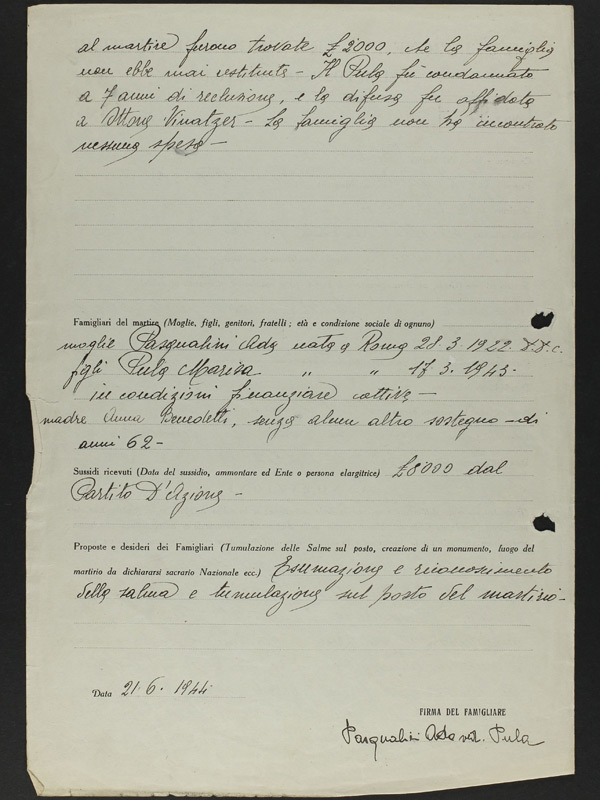 al martire furono trovate £2000, che la famiglia
non ebbe mai restituite - Il Pula fù condannato
a 7 anni di reclusione, e la difesa fu affidata
a Ottone Vinatzer - La famiglia non ha incontrato
nessuna spesa -
Famigliari del martire (Moglie, figli, genitori, fratelli ; età e condizione sociale di ognuno)
moglie Pasqualini Ada nata a Roma 28. 3. 1922. D.D.C.
figli Pula Marisa " " 17. 3. 1943 -
in condizioni finanziare cattive -
madre Anna Benedetti, senza alcun altro sostegno - di
anni 62 -
Sussidi ricevuti (Data del sussidio, ammontare ed Ente o persona elargitrice) £8000 dal
Partito D'Azione -
Proposte e desideri dei Famigliari (Tumulazione delle Salme sul posto, creazione di un monumento, luogo del
martirio da dichiararsi sacrario Nazionale ecc.) Esumazione e riconoscimento
della salma e tumulazione sul posto del martirio -
Data 21. 6. 1944
FIRMA DEL FAMIGLIARE
Pasqualini Ada ved. Pula